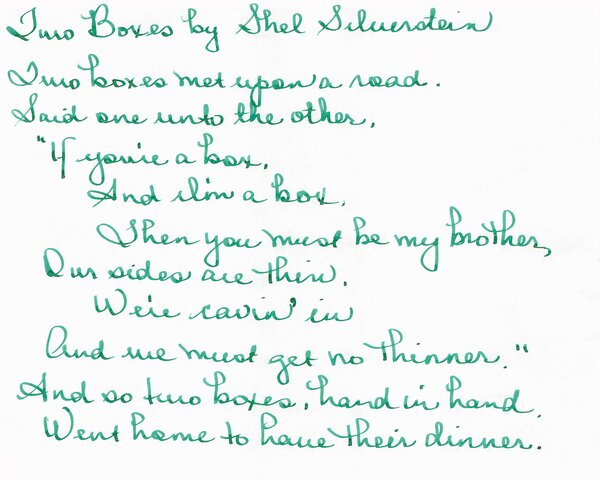 Two Boxes by Shel Silverstein
Two boxes met upon a road.
Said one unto the other,
"If you're a box,
And I'm a box,
Then you must be my brother,
Our sides are thin,
We're cavin' in
And we must get no thinner."
And so two boxes, hand in hand,
Went home to have their dinner.